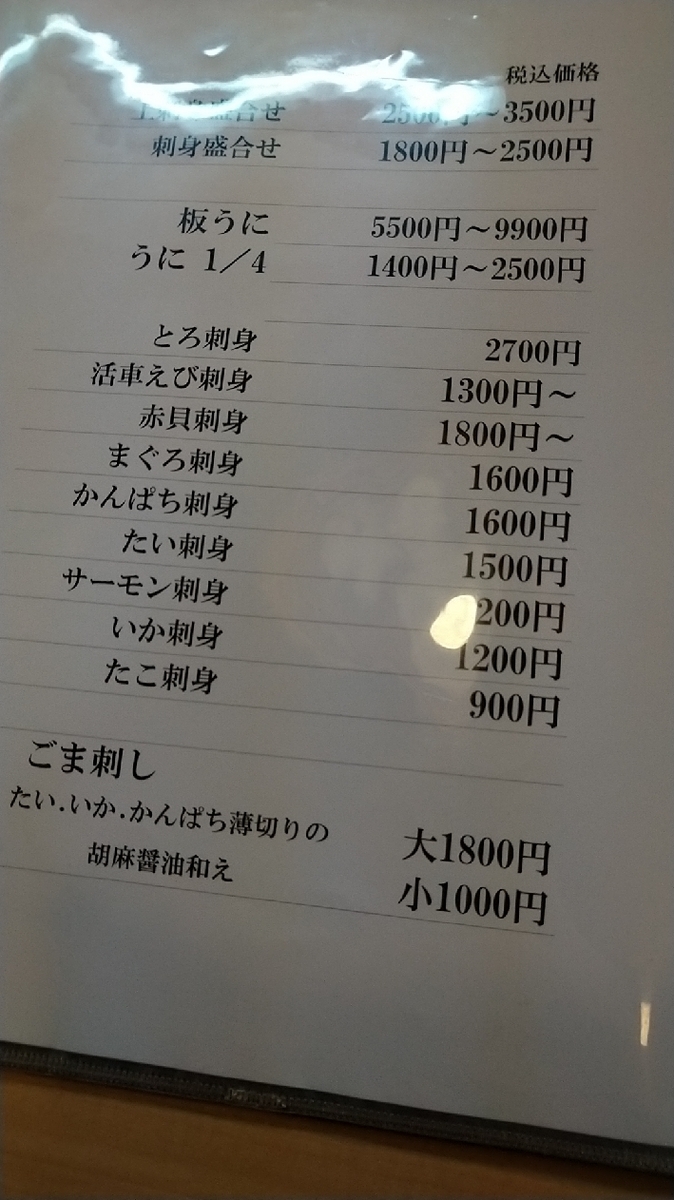 税込価格
上刺身盛合せ 2500円～3500円
刺身盛合せ 1800円～2500円
板うに 5500円～9900円
うに 1／4 1400円～2500円
とろ刺身 2700円
活車えび刺身 1300円～
赤貝刺身 1800円～
まぐろ刺身 1600円
かんぱち刺身 1600円
たい刺身 1500円
サーモン刺身
いか刺身 1200円
たこ刺身 900円
ごま刺し
たい.いか.かんぱち薄切りの 大1800円
胡麻醤油和え 小1000円